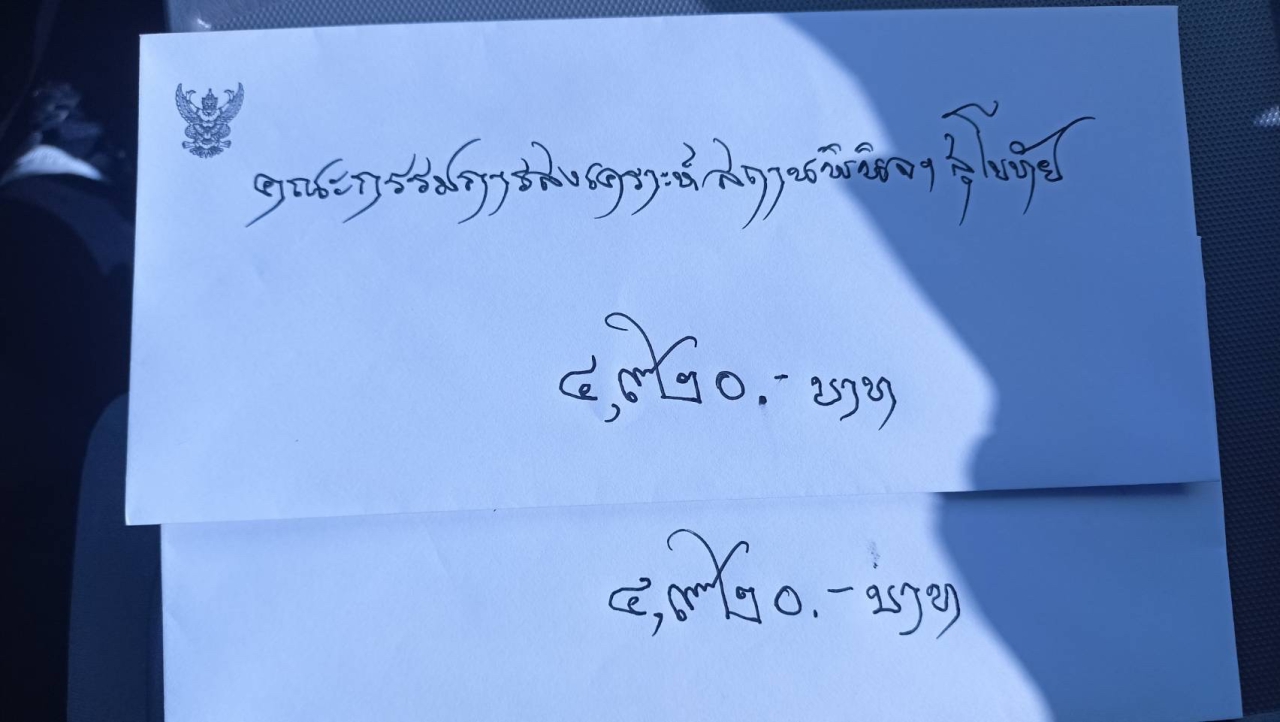 คณะกรรมการสงเคราะห์ สถานพินิจฯ สุโขทัย
๔,๗๒๐.- บาท
๔,๗๒๐.- บาท